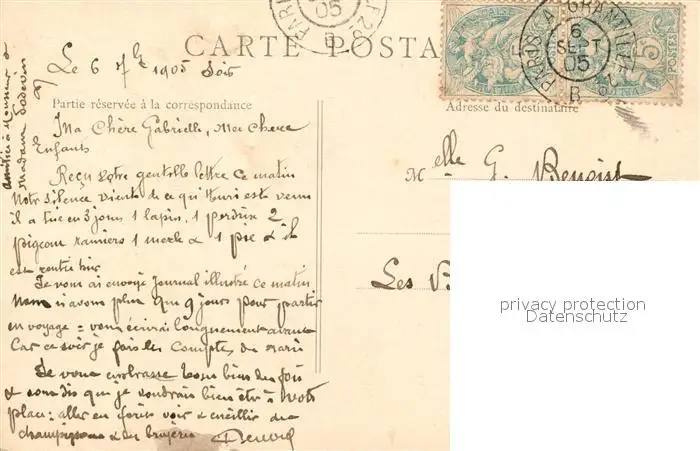 CARTE POSTA
Le 6 7bre 1905 Soir
Partie réservée à la correspondance
Adresse du destinataire
Ma Chère Gabrielle, Mes Chers
Enfants
Reçu votre gentille lettre ce matin
Notre silence vient de ce qu'Henri est venu
il a tué en 3 jours 1 lapin, 1 perdrix 2
pigeons ramiers 1 merle & 1 pie & il
est rentré hier
Je vous ai envoyé Journal illustré ce matin
Nous n'avons plus que 9 jours pour partir
en voyage = vous écrirai longuement avant
Car ce soir je fais les Comptes de
Je vous embrasse tous bien des fois
& vous dis que je voudrais bien être à votre
place: aller en forêt voir & cueillir des
champignons & des bruyères
Amitiés à Monsieur &
Madame
Melle G. Benoist
Les
PARIS A GRANVILLE
6
SEPT
05
POSTES
privacy protection
Datenschutz